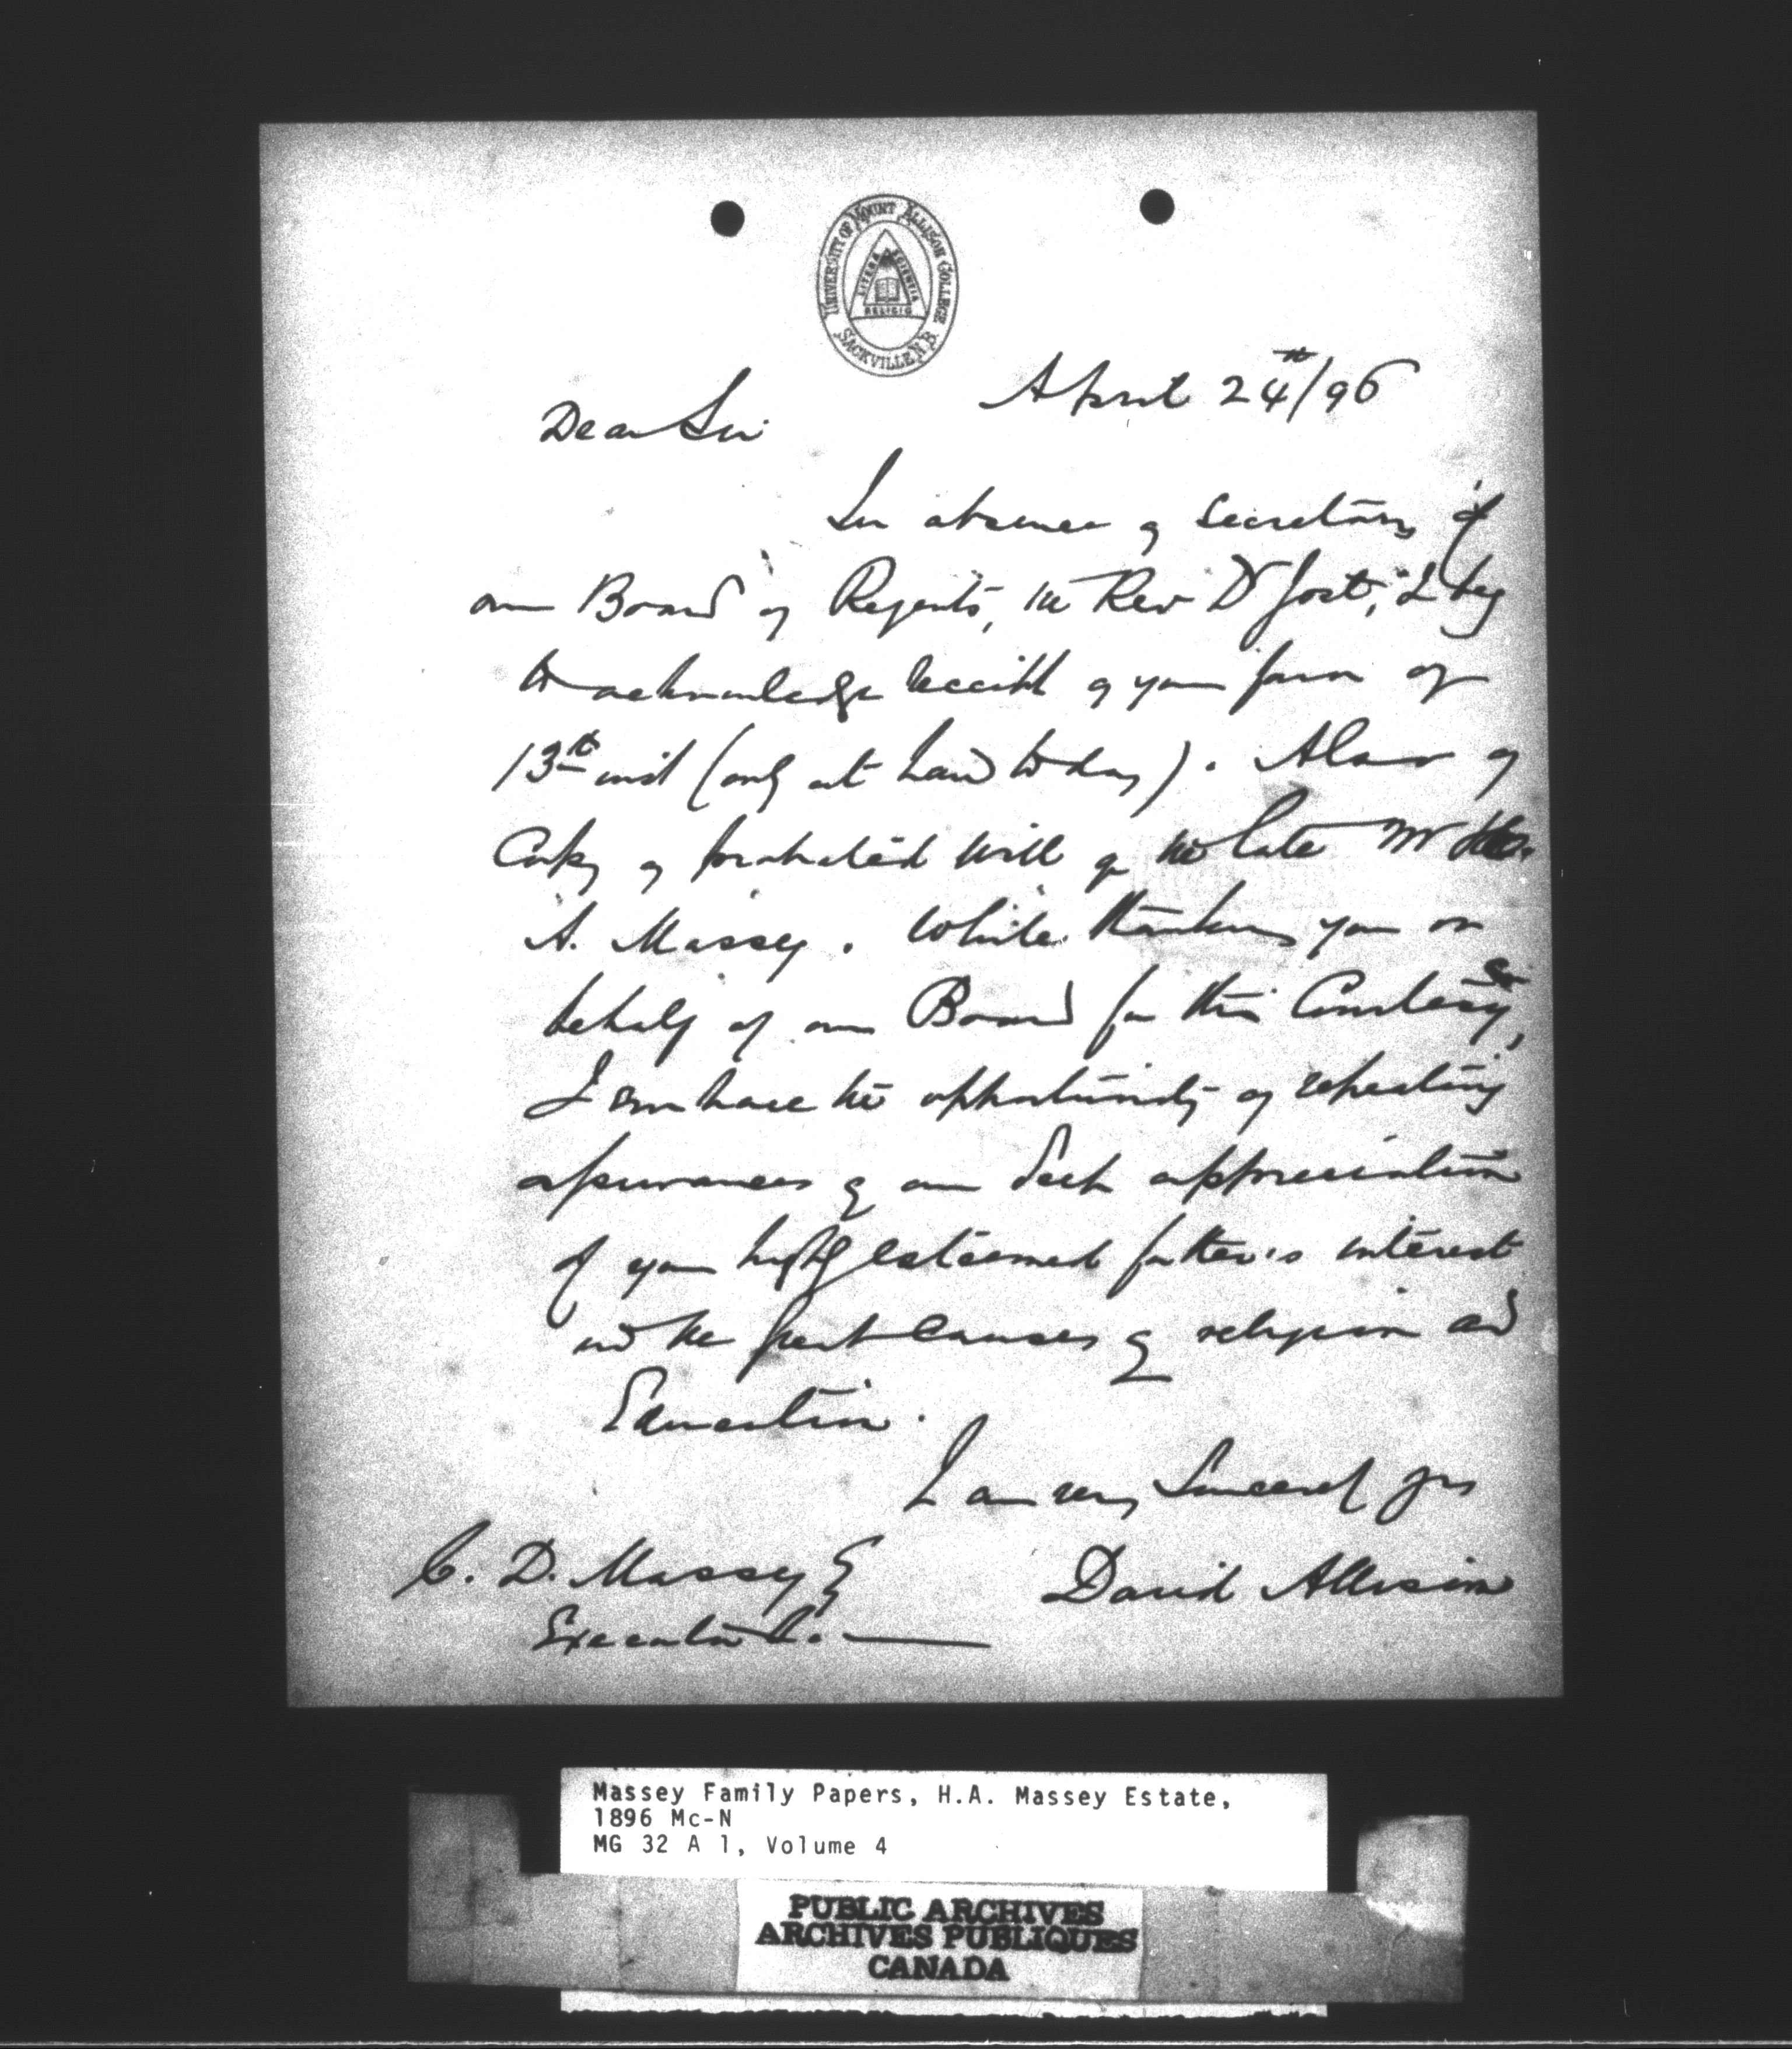 UNIVERSITY OF MOUNT ALLISON COLLEGE
SACKVILLE N.B.
LITERÆ SCIENTIA
RELIGIO
April 24th/96
Dear Sir
In absence of Secretary of
our Board of Regents, the Rev Dr Jost, I beg
to acknowledge receipt of your favor of
13th inst (only at hand to day). Also of
Copy of probated will of the late Mr
A. Massey. While thanking you on
behalf of our Board for this Courtesy,
I embrace the opportunity of repeating
assurances of our deep appreciation
of your highly esteemed father's interest
in the great causes of religion and
Education.
I am very Sincerely yrs
David Allison
C. D. Massey
Executor &c.
Massey Family Papers, H.A. Massey Estate,
1896 Mc-N
MG 32 A 1, Volume 4
PUBLIC ARCHIVES
ARCHIVES PUBLIQUES
CANADA